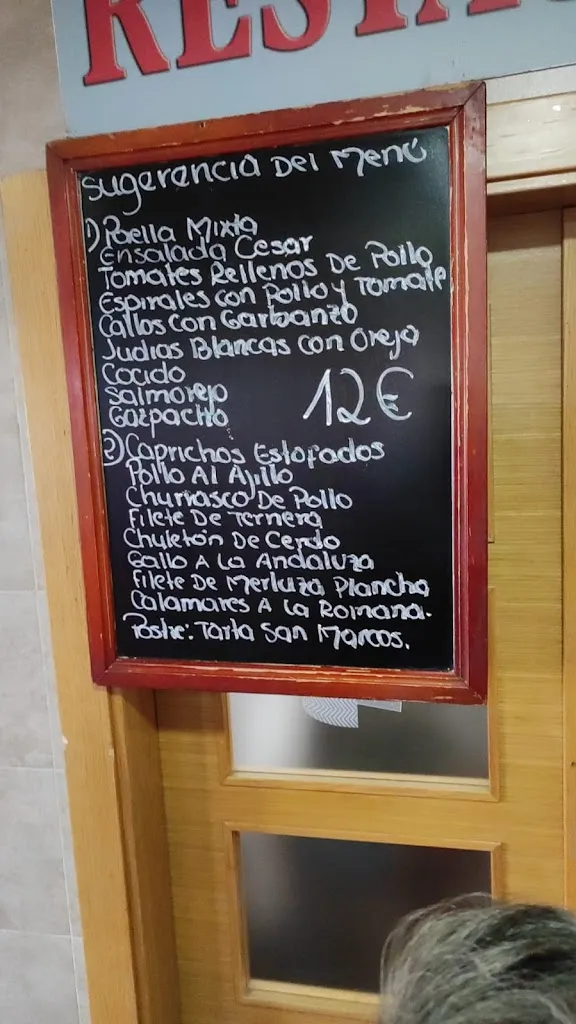 RESTA
Sugerencia Del Menú
1) Paella Mixta
Ensalada Cesar
Tomates Rellenos De Pollo
Espirales con Pollo y Tomate
Callos Con Garbanzo
Judias Blancas con Oreja
Cocido
Salmorejo
Gazpacho
12€
2) Caprichos Estofados
Pollo Al Ajillo
Churrasco De Pollo
Filete De Ternera
Chuletón De Cerdo
Gallo A La Andaluza
Filete De Merluza Plancha
Calamares A La Romana.
Postre: Tarta San Marcos.